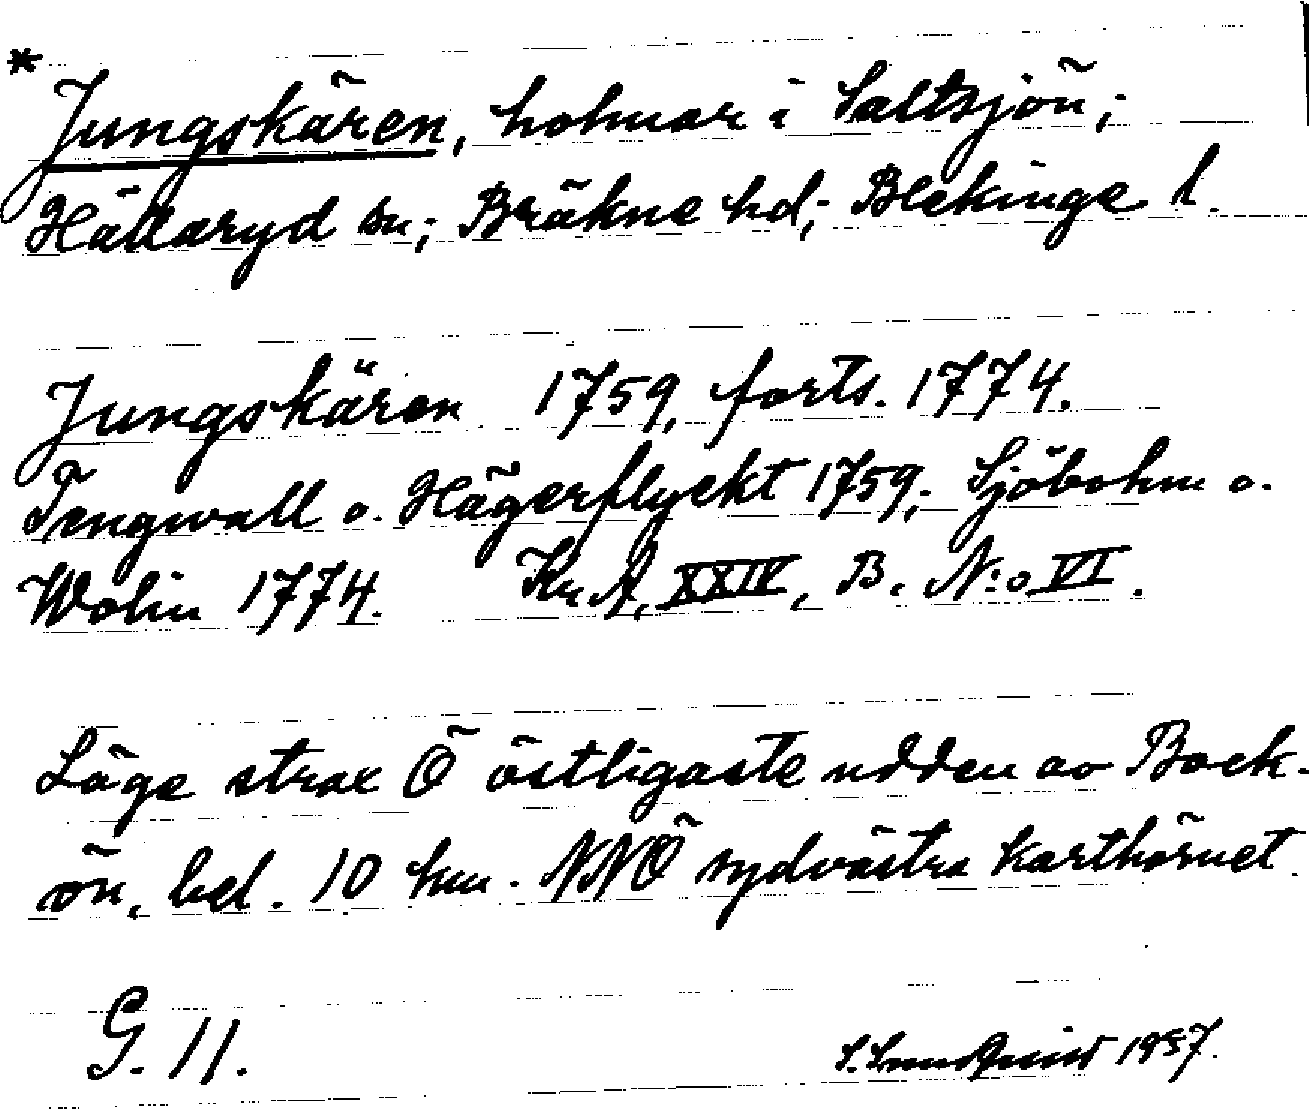 * Jungskären, holmar i Saltsjön;
Hällaryd sn; Bräkne hd; Blekinge l.
Jungskären 1759, forts. 1774.
Tengwall o. Hägerflyckt 1759; Sjöbohm o.
Wolin 1774. Kr. A, XXIV, B. N:o VI.
Läge strax Ö östligaste udden av Bock-
ön, bel. 10 km. NNÖ sydvästra karthörnet.
G. 11.
1957.